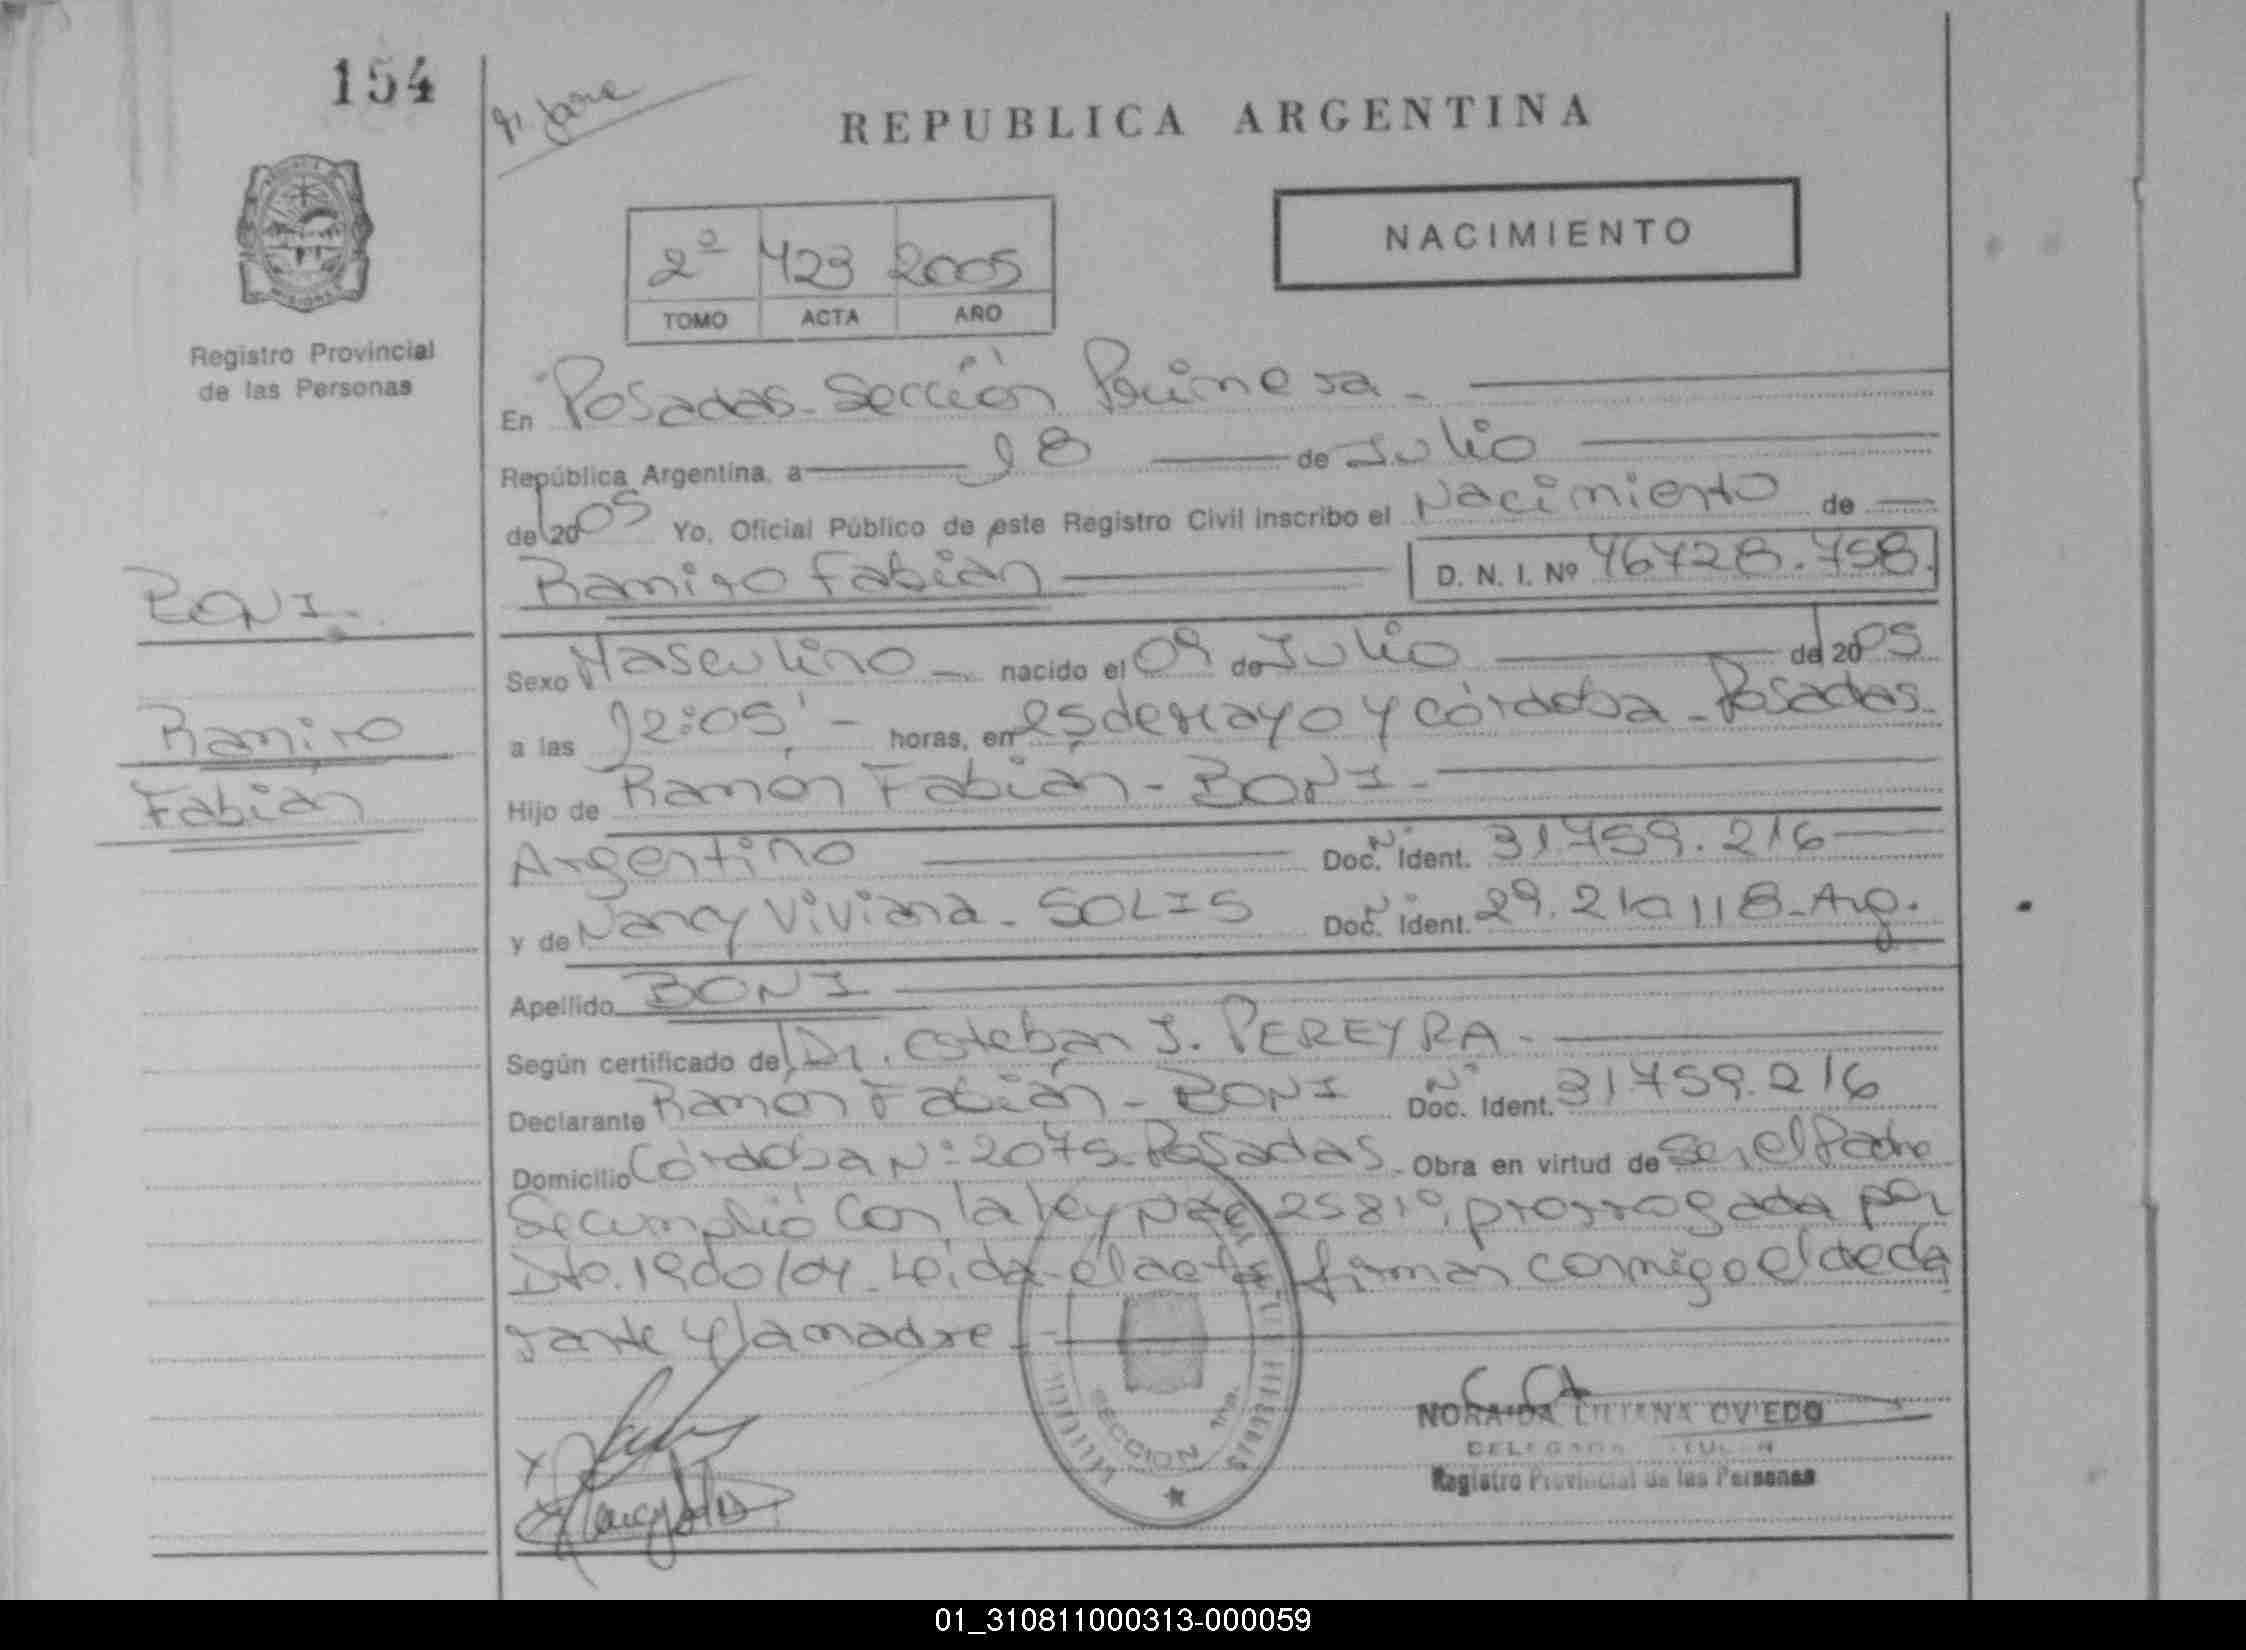 154
REPUBLICA ARGENTINA
NACIMIENTO
2º 423 2005
TOMO ACTA AÑO
Registro Provincial
de las Personas
En Posadas - Sección Primera -
República Argentina, a 18 de Julio
de 2005 Yo, Oficial Público de este Registro Civil inscribo el Nacimiento de
Ramiro Fabián D. N. I. Nº 46428.458.
BONI -
Ramiro
Fabián
Sexo Masculino - nacido el 09 de Julio de 2005
a las 12:05' - horas, en 25 de Mayo y Córdoba - Posadas -
Hijo de Ramón Fabián - BONI -
Argentino Doc. Nº Ident. 31459.216
y de Nancy Viviana - SOLIS Doc. Nº Ident. 29.210118 - Arg.
Apellido BONI
Según certificado de Dr. Esteban J. PEREYRA -
Declarante Ramón Fabián - BONI Doc. Nº Ident. 31459.216
Domicilio Córdoba Nº 2075 - Posadas - Obra en virtud de Ser el Padre
Se cumplió con la ley 25819, prorrogada por
Dto. 1900/04 - Leída el acta firman conmigo el decla
rante y la madre -
SECCION 1ra.
NORAIDA LILIANA OVIEDO
DELEGADA TITULAR
Registro Provincial de las Personas
01_310811000313-000059